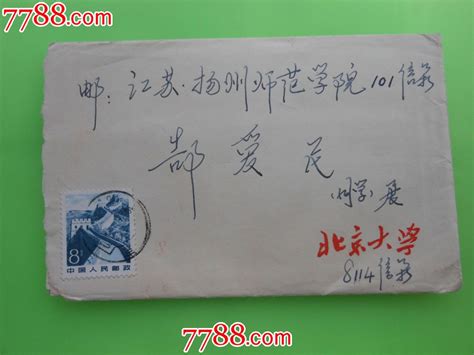 7788.com
邮：江苏·扬州师范学院101信箱
郜爱民
(同学)展
北京大学
8114信箱
8分
中国人民邮政
7788.com